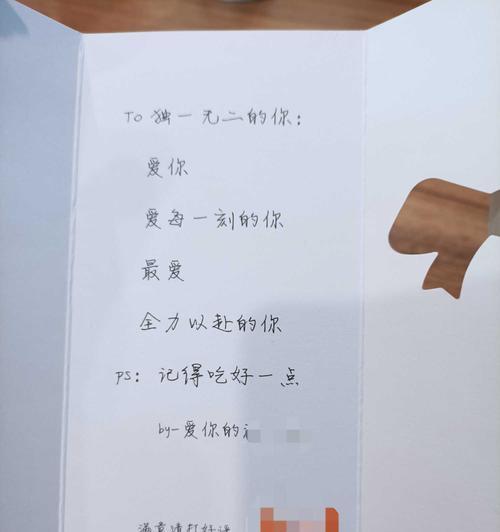 TO 独一无二的你：
爱你
爱每一刻的你
最爱
全力以赴的你
PS：记得吃好一点
by-爱你的
满意请打好评